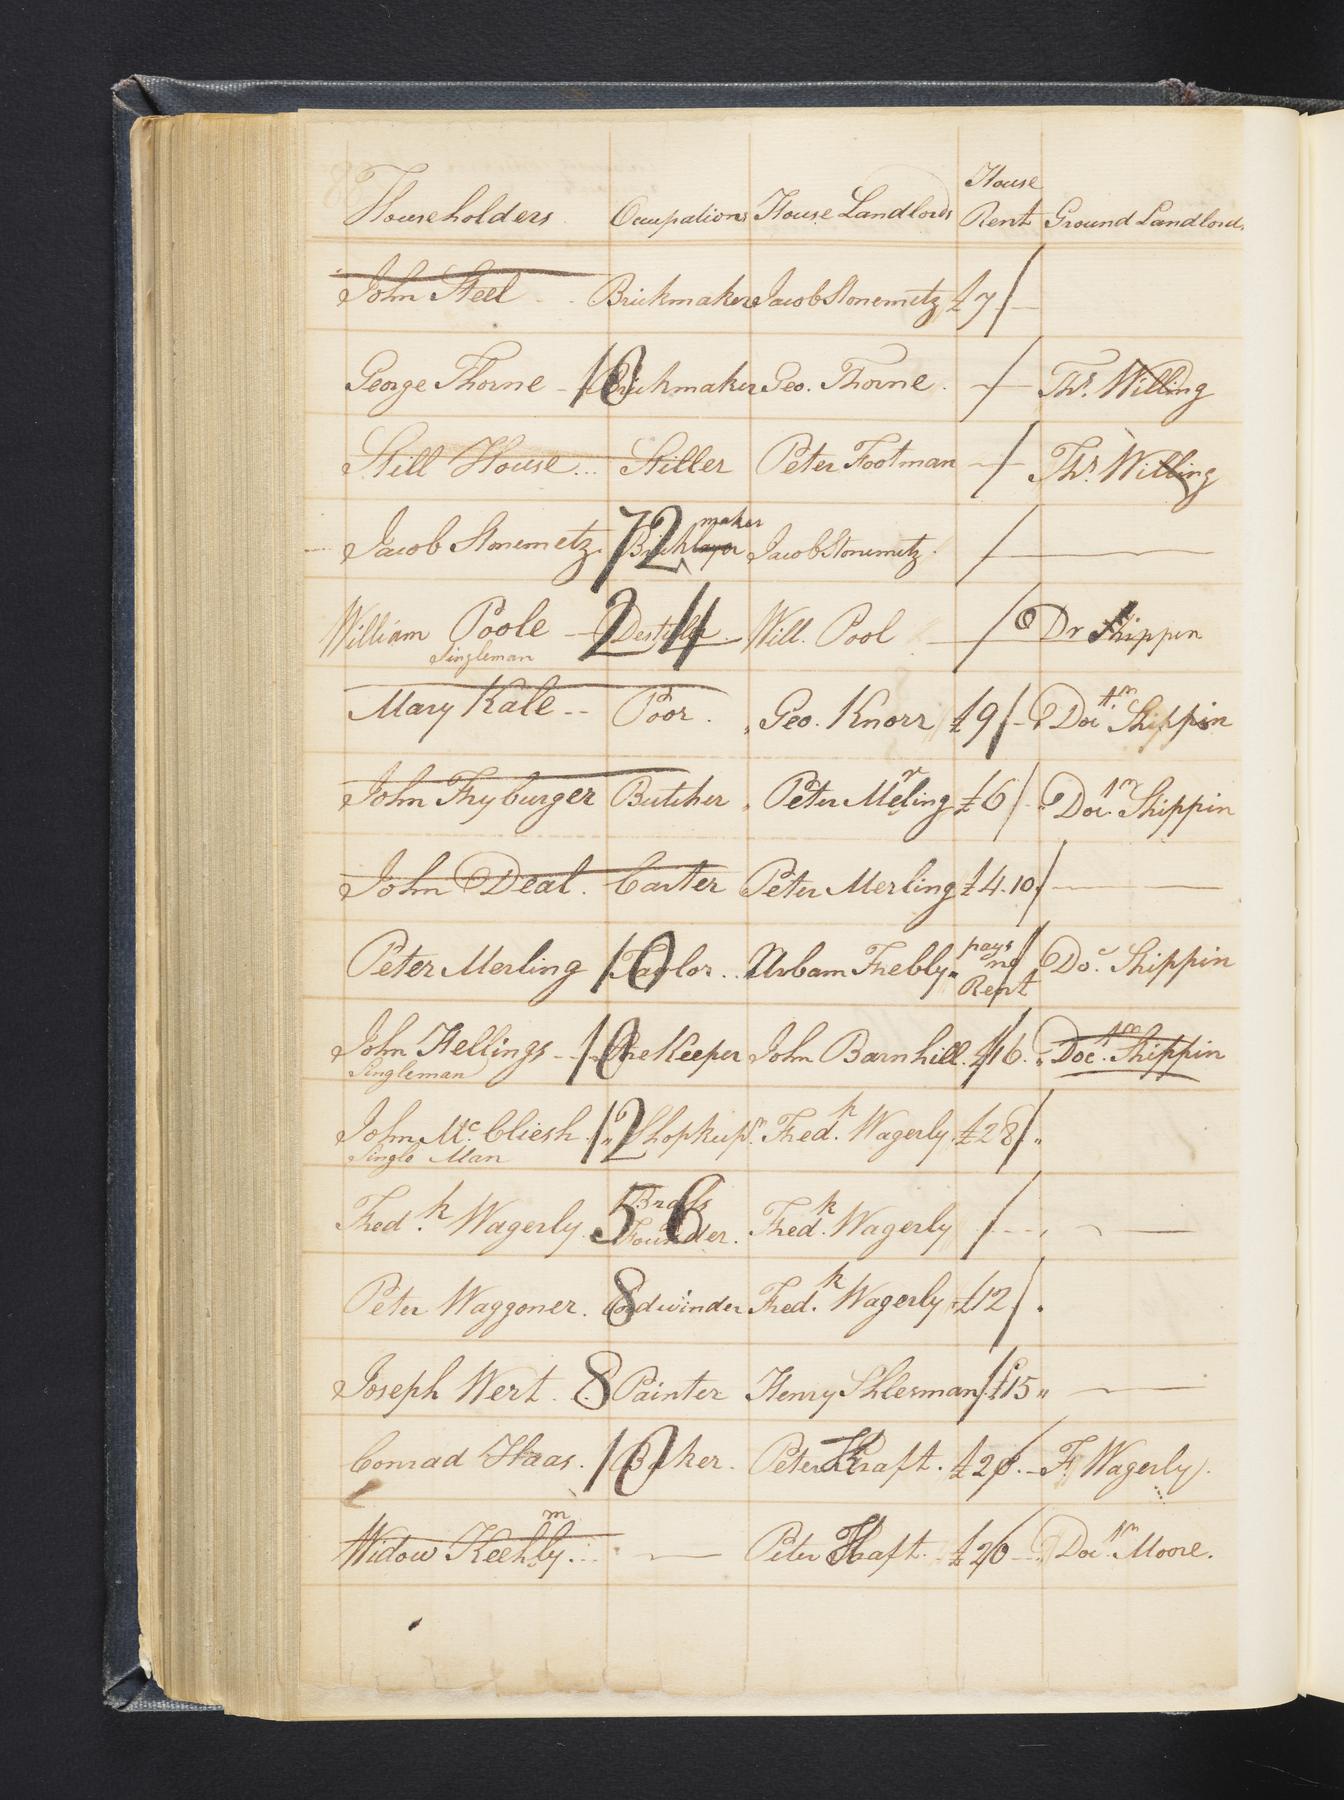 Householders Occupations House Landlords House Rent Ground Landlords
John Steel Brickmaker Jacob Stonemetz £7
George Thorne 10 Brickmaker Geo. Thorne. Ths. Willing
Still House Stiller Peter Footman Ths. Willing
Jacob Stonemetz 72 Bricklayer maker Jacob Stonemetz
William Poole Singleman 24 Will. Pool Dr Shippin
Mary Kale Poor. Geo. Knorr £9 Docr. Shippin
John Fryburger Butcher Peter Merling £6 Docr. Shippin
John Deal. Carter Peter Merling £4.10
Peter Merling 10 Taylor. Urbam Frebly pays no Rent Doc. Shippin
John Hellings Singleman 10 Keeper John Barnhill. £16. Docr. Shippin
John Mc. Cliesh Single Man 12 Shopkeepr. Fredk. Wagerly £28
Fredk. Wagerly 56 Brass Founder. Fredk. Wagerly
Peter Waggoner. 8 Cordwinder Fredk. Wagerly £12
Joseph Wert. 8 Painter Henry Shlesman £15
Conrad Haas. 10 Baker. Peter Kraft. £20. F. Wagerly.
Widow Peter Kraft. £20 Docr. Moore.